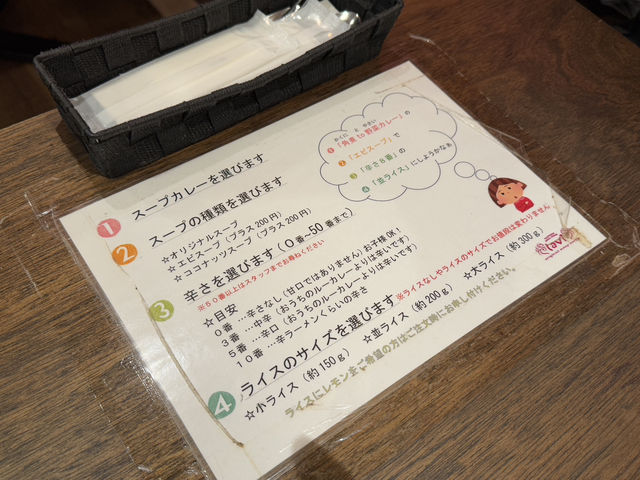 1 スープカレーを選びます
2 スープの種類を選びます
☆オリジナルスープ
☆エビスープ（プラス200円）
☆ココナッツスープ（プラス200円）
3 辛さを選びます（0番～50番まで）
※50番以上はスタッフまでお尋ねください
☆目安
0番 …辛さなし（甘口ではありません）お子様OK！
3番 …中辛（おうちのルーカレーよりは辛いです）
5番 …辛口（おうちのルーカレーよりは辛いです）
10番 …辛ラーメンくらいの辛さ
4 ライスのサイズを選びます ※ライスなしやライスのサイズでお値段は変わりません
☆小ライス（約150g） ☆並ライス（約200g） ☆大ライス（約300g）
ライスにレモン ご希望の方はご注文時にお申し付けください。
かくに と やさい
1「角煮 to 野菜カレー」の
2「エビスープ」で
3「辛さ8番」の
4「並ライス」にしようかなぁ
lavi